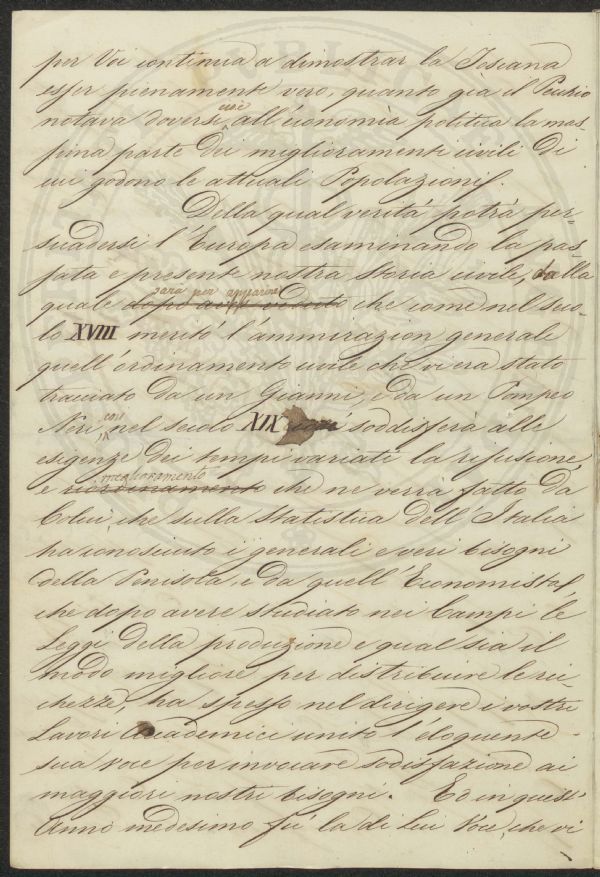 per Voi continua a dimostrar la Toscana
esser pienamente vero, quanto già il Pecchio
notava doversi cioè all'economia politica la mas-
sima parte dei miglioramenti civili di
cui godono le attuali Popolazioni.
Della qual verità potrà per-
suadersi l'Europa esaminando la pas-
sata e presente nostra storia civile, dalla
quale sarà per apparire
dopo aver veduto che come nel seco-
lo XVIII meritò l'ammirazion generale
quell'ordinamento civile che vi era stato
tracciato da un Gianni, e da un Pompeo
Neri così nel secolo XIX soddisferà alle
esigenze dei tempi variati la rifusione,
e miglioramento
riordinamento che ne verrà fatto da
Colui, che sulla Statistica dell'Italia
ha conosciuto i generali e veri bisogni
della Penisola, e da quell'Economista,
che dopo avere studiato nei Campi le
Leggi della produzione e qual sia il
modo migliore per distribuire le ric-
chezze, ha spesso nel dirigere i vostri
Lavori Accademici unito l'eloquente
sua voce per invocare sodisfazione ai
maggiori nostri bisogni. Ed in quest'
Anno medesimo fù la di Lui Voce, che vi